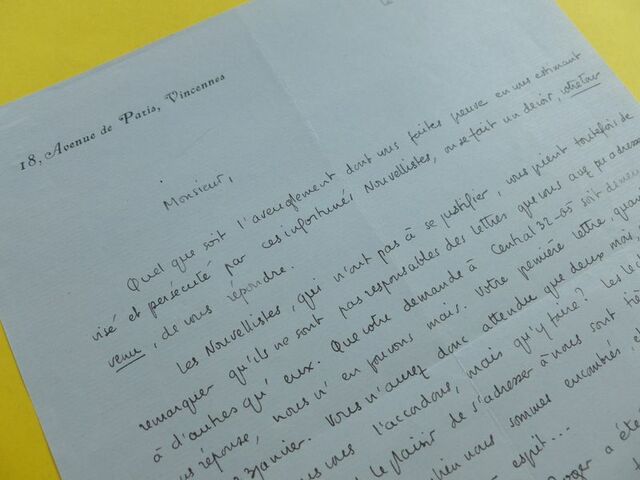 18, Avenue de Paris, Vincennes
Monsieur,
Quel que soit l'aveuglement dont vous faites preuve en vous estimant
visé et persécuté par ces infortunés Nouvellistes, on se fait un devoir,
venu, de vous répondre.
Les Nouvellistes, qui n'ont pas à se justifier, vous prient toutefois de
remarquer qu'ils ne sont pas responsables des lettres que vous avez pu adresser
à d'autres qu'eux. Que votre demande à Central 32-65 soit
réponse, nous n'en pouvons mais. Votre première lettre,
janvier. Vous n'aurez donc attendu que deux mois,
vous l'accordons, mais qu'y faire? Les
le plaisir de s'adresser à nous sont
nous sommes encombrés
esprit...
a été